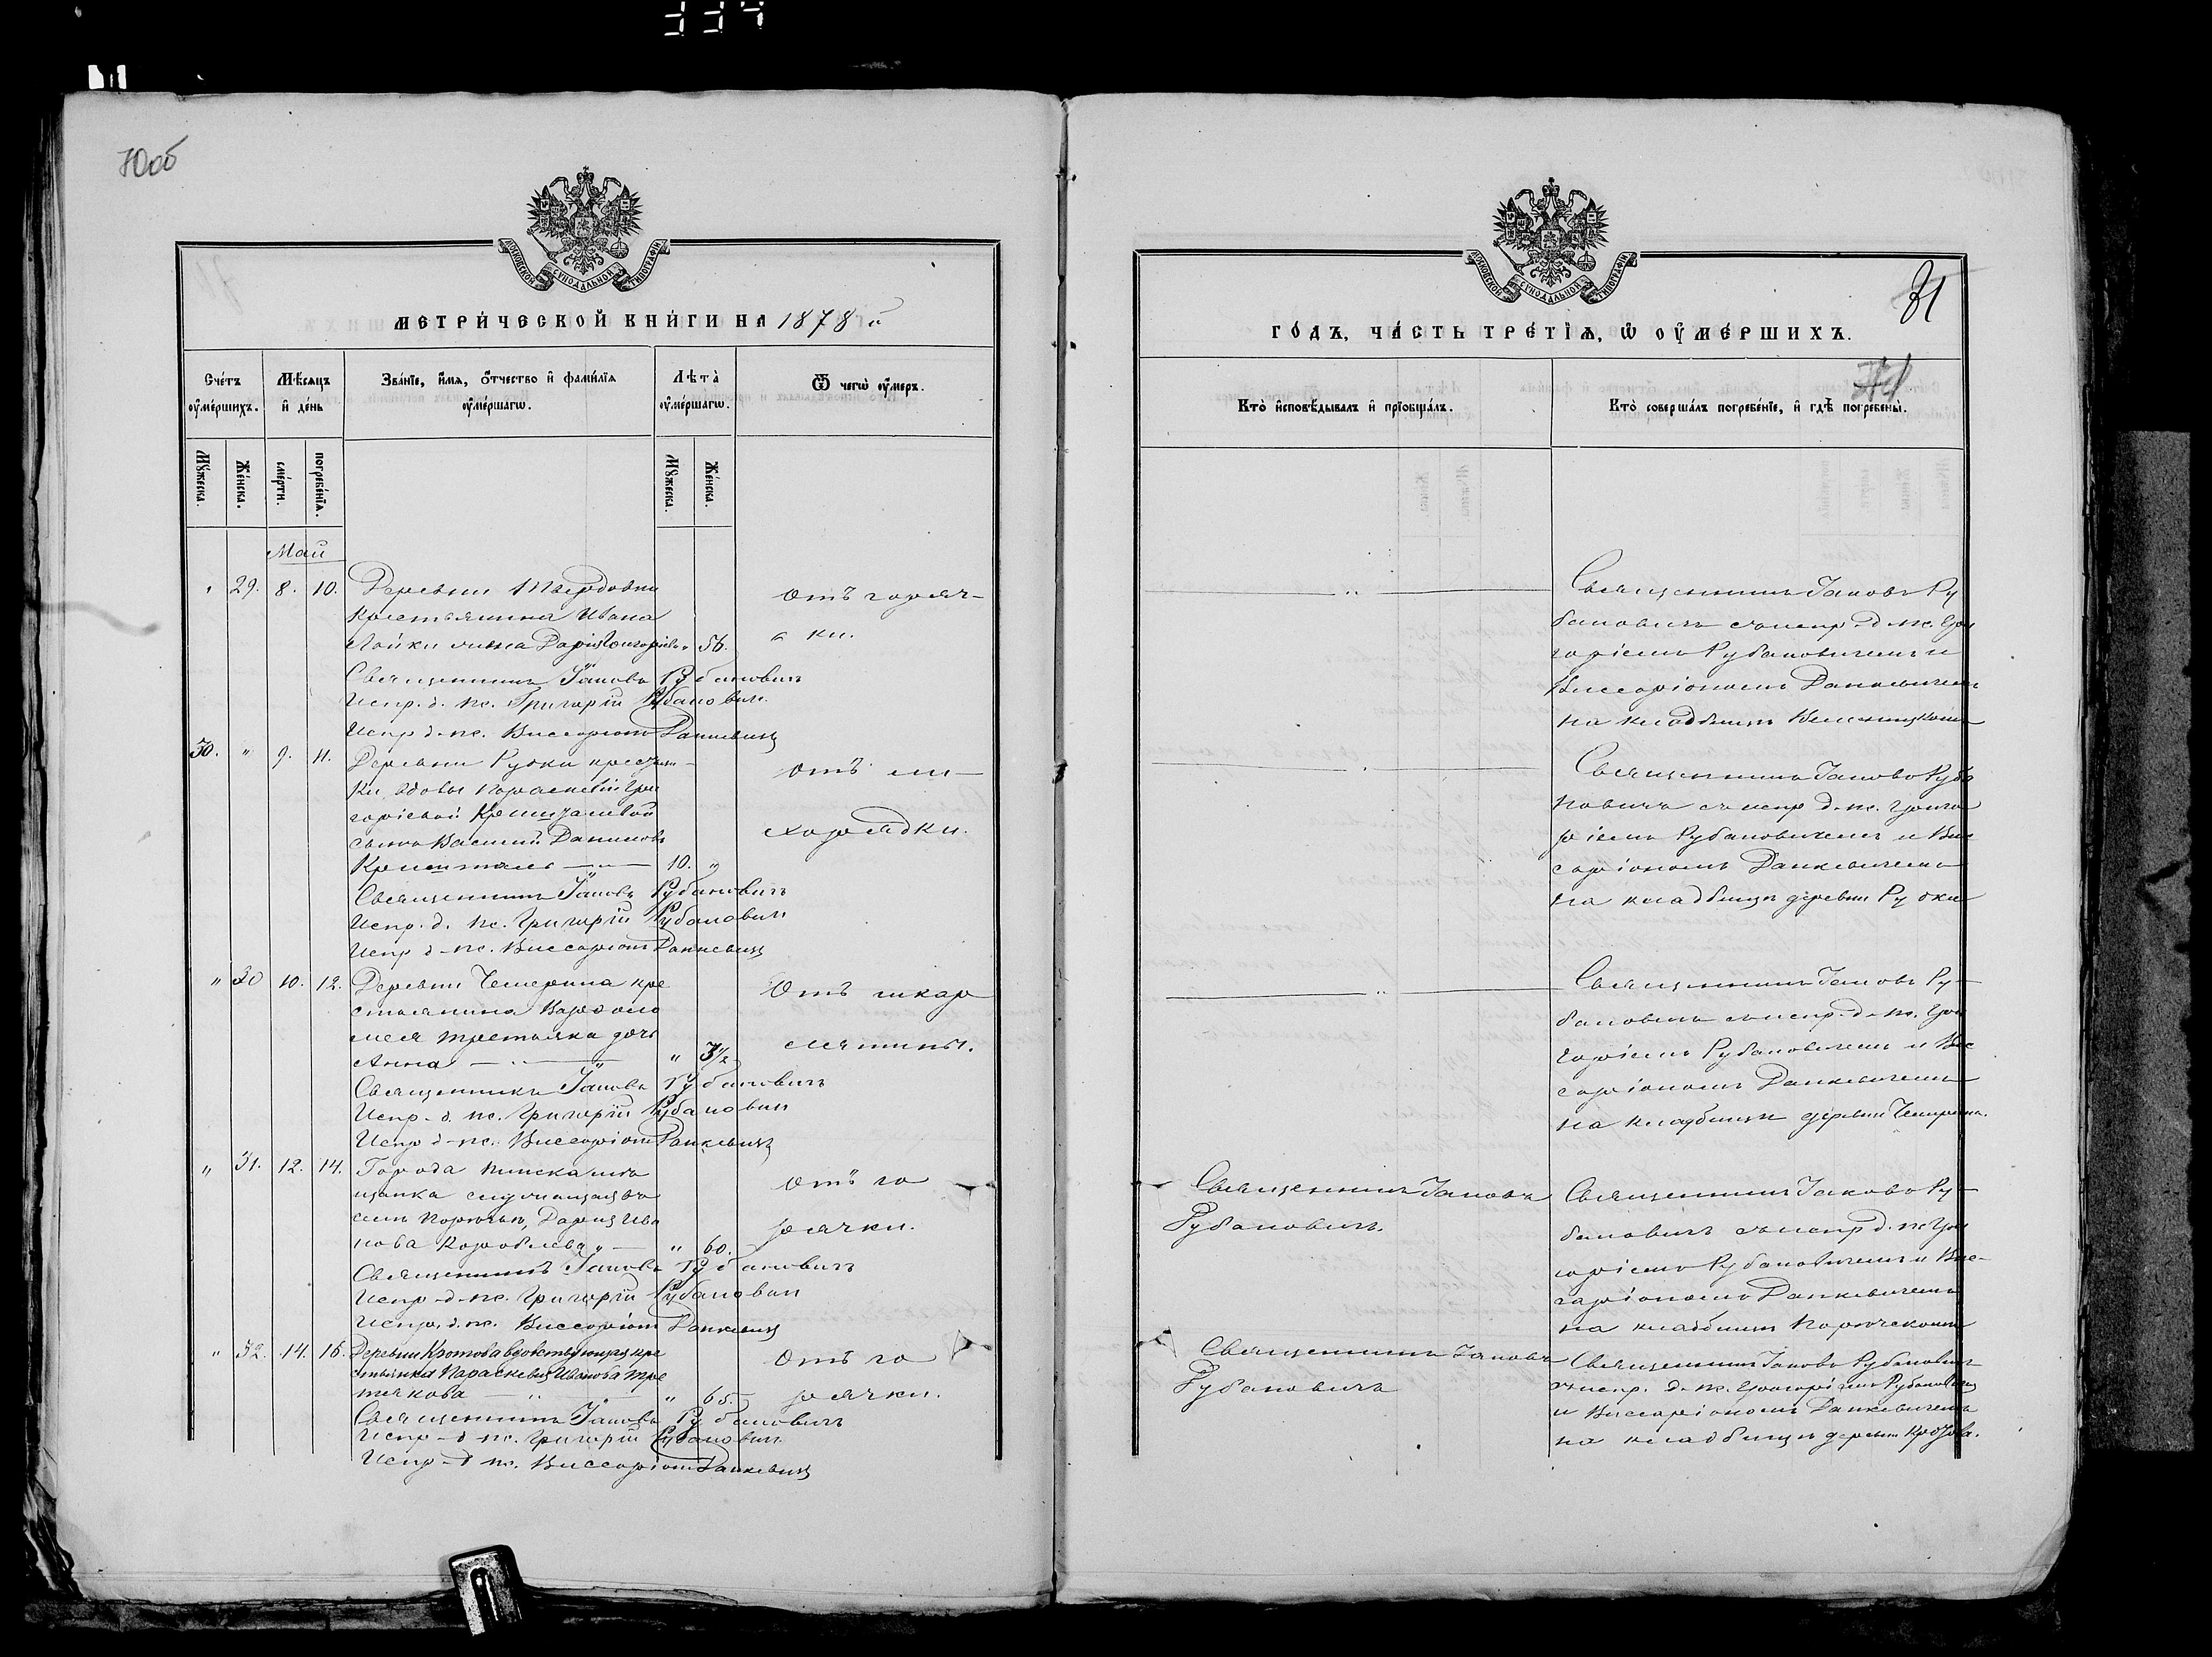 334
70об
МОСКОВСКОЙ СѴНОДАЛЬНОЙ ТИПОГРАФІИ
МЕТРИ́ЧЕСКОЙ КНИ́ГИ НА 1878 й
Сче́тъ оу҆ме́ршихъ.
Мѣ́сяцъ и҆ де́нь
Зва́нїе, и҆́мя, ѻ҆́тчество и҆ фами́лїя оу҆ме́ршагѡ.
Лѣ̀та̀ оу҆ме́ршагѡ.
Ѿ чегѡ̀ оу҆́меръ.
Мꙋ́жеска.
Же́нска.
сме́рти.
погребе́нїѧ.
Мꙋ́жеска.
Же́нска.
Май
" 29. 8. 10. Деревни Твердовки
крестьянина Ивана
Лойки жена Дарія Григоріева " 56.
отъ горяч-
ки.
Священникъ Іаковъ Рубановичъ
Испр. д. пс. Григорій Рубанович
Испр д. пс. Виссаріонъ Данкевичъ
30. " 9. 11. Деревни Рудки крестьян-
ки вдовы Параскевіи Гри
горіевой
сынъ Василій Даниловъ
10. "
отъ ли-
хорадки.
Священникъ Іаковъ Рубановичъ
Испр. д. пс. Григорій Рубанович
Испр д. пс. Виссаріонъ Данкевичъ
" 30 10. 12. Деревни Чемерина кре
стьянина Варѳоло
мея Третьяка дочь
Анна " 3½
Отъ шкар
лятины.
Священникъ Іаковъ Рубановичъ
Испр. д. пс. Григорій Рубанович
Испр д. пс. Виссаріонъ Данкевичъ
" 31. 12. 14. Города Пинска мѣ
щанка
Дарія Ива
нова " 60.
отъ го
рячки.
Священникъ Іаковъ Рубановичъ
Испр. д. пс. Григорій Рубанович
Испр. д. пс. Виссаріонъ Данкевичъ
" 32. 14. 16. Деревни Кротова вдовствующая кре
стьянка Параскевія Иванова Тре
тякова " 65.
отъ го
рячки.
Священникъ Іаковъ Рубановичъ
Испр. д. пс. Григорій Рубанович
Испр. д. пс. Виссаріонъ Данкевичъ
МОСКОВСКОЙ СѴНОДАЛЬНОЙ ТИПОГРАФІИ
ГО́ДЪ, ЧА́СТЬ ТРЕ́ТЇѦ, Ѽ ОУ҆МЕ́РШИХЪ.
Кто̀ и҆сповѣ́дывалъ и҆ прїобща́лъ.
Кто̀ соверша́лъ погребе́нїе, и҆ гдѣ̀ погребены̀.
Священникъ Іаковъ Ру
бановичъ съ испр д. пс. Гри
горіемъ Рубановичемъ и
Виссаріономъ Данкевичемъ
на кладбищѣ
Священникъ Іаковъ Руба
новичъ съ испр д. пс. Григо
ріемъ Рубановичемъ и Вис
саріономъ Данкевичемъ
на кладбищѣ деревни Рудки
Священникъ Іаковъ Ру-
бановичъ съ испр. д. пс. Гри
горіемъ Рубановичемъ и Вис
саріономъ Данкевичемъ
на кладбищѣ деревни Чемерина.
Священникъ Іаковъ
Рубановичъ.
Священникъ Іаковъ Ру-
бановичъ съ испр д. пс Гри
горіемъ Рубановичемъ и Вис-
саріономъ Данкевичемъ
на кладбищѣ
Священникъ Іаковъ
Рубановичъ
Священникъ Іаковъ Рубановичъ
съ испр. д. пс. Григоріемъ Рубановичемъ
и Виссаріономъ Данкевичемъ
на кладбищѣ деревни Кротова.